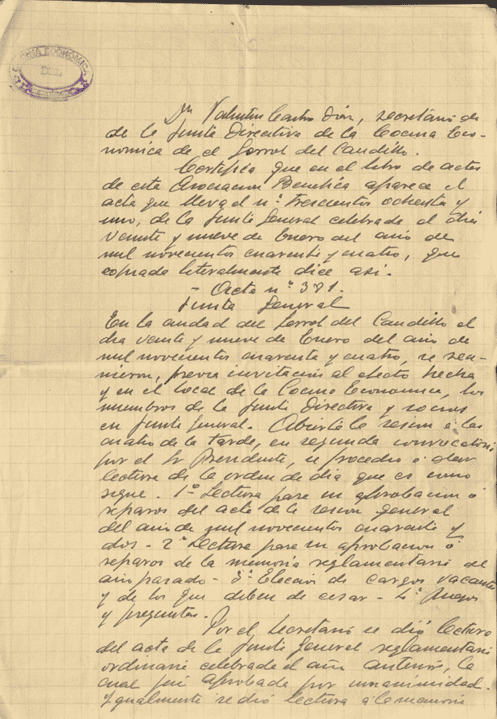 COCINA ECONOMICA
DEL
Dn Valentin Castro Dion, secretario de
de la Junta Directiva de la Cocina Eco-
nomica de el Ferrol del Caudillo.
Certifico que en el libro de actas
de esta Asociacion Benefica aparece el
acta que lleva el nº. trescientos ochenta y
uno, de la Junta General celebrada el dia
veinte y nueve de Enero del año de
mil novecientos cuarenta y cuatro, que
copiado literalmente dice asi.
- Acta nº 381.
Junta General
En la ciudad del Ferrol del Caudillo el
dia veinte y nueve de Enero del año de
mil novecientos cuarenta y cuatro, se reu-
nieron, previa invitacion al efecto hecha
y en el local de la Cocina Economica, los
miembros de la Junta Directiva y socios
en Junta General. Abierta la sesion a las
cuatro de la tarde, en segunda convocatoria
por el Sr Presidente, se procedió a dar
lectura de la orden de dia que es como
sigue. 1º Lectura para su aprobacion ó
reparos del acta de la sesion general
del año de mil novecientos cuarenta y
dos - 2º Lectura para su aprobacion ó
reparos de la memoria reglamentaria del
año pasado - 3º Eleccion de cargos vacantes
y de los que deben de cesar - 4º Ruegos
y preguntas.
Por el Secretario se dió lectura
del acta de la Junta General reglamentaria
ordinaria celebrada el año anterior, la
cual fué aprobada por unanimidad.
Igualmente se dió lectura a la memoria